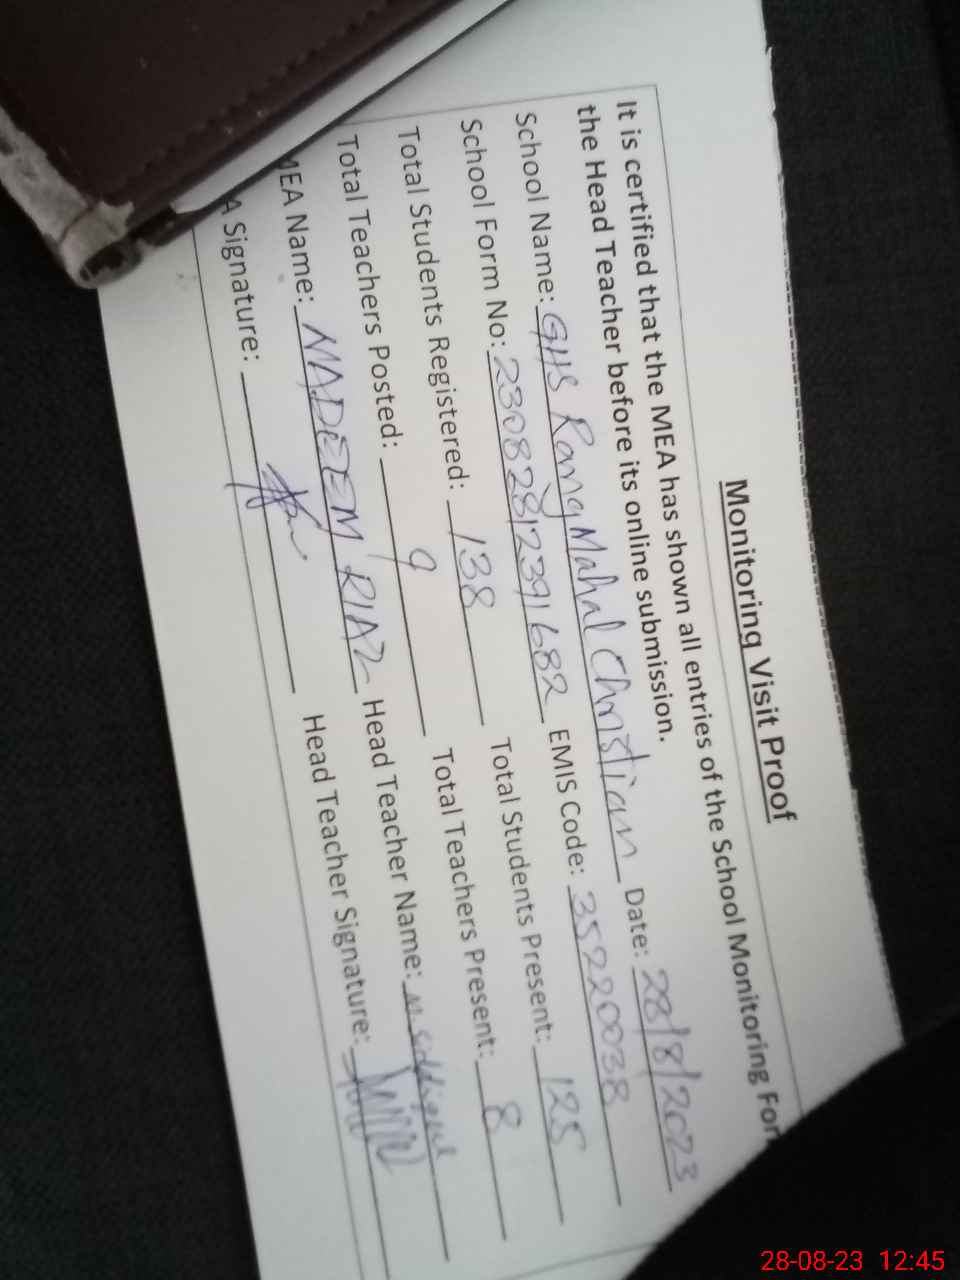 Monitoring Visit Proof
It is certified that the MEA has shown all entries of the School Monitoring For
the Head Teacher before its online submission.
School Name: GHS Rang Mahal Christian Date: 28/8/2023
School Form No: 23082812391682 EMIS Code: 35220038
Total Students Registered: 138 Total Students Present: 125
Total Teachers Posted: 9 Total Teachers Present: 8
MEA Name: NADEEM RIAZ Head Teacher Name: M. Siddique
A Signature: Head Teacher Signature:
28-08-23 12:45